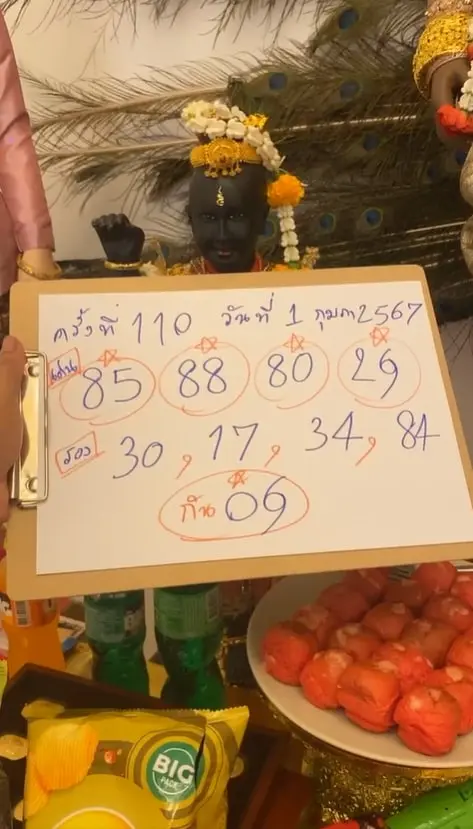 ครั้งที่ 110 วันที่ 1 กุมภา 2567
เด่น 85 88 80 29
รอง 30 , 17 , 34 , 84
กัน 09
BIG
PACK